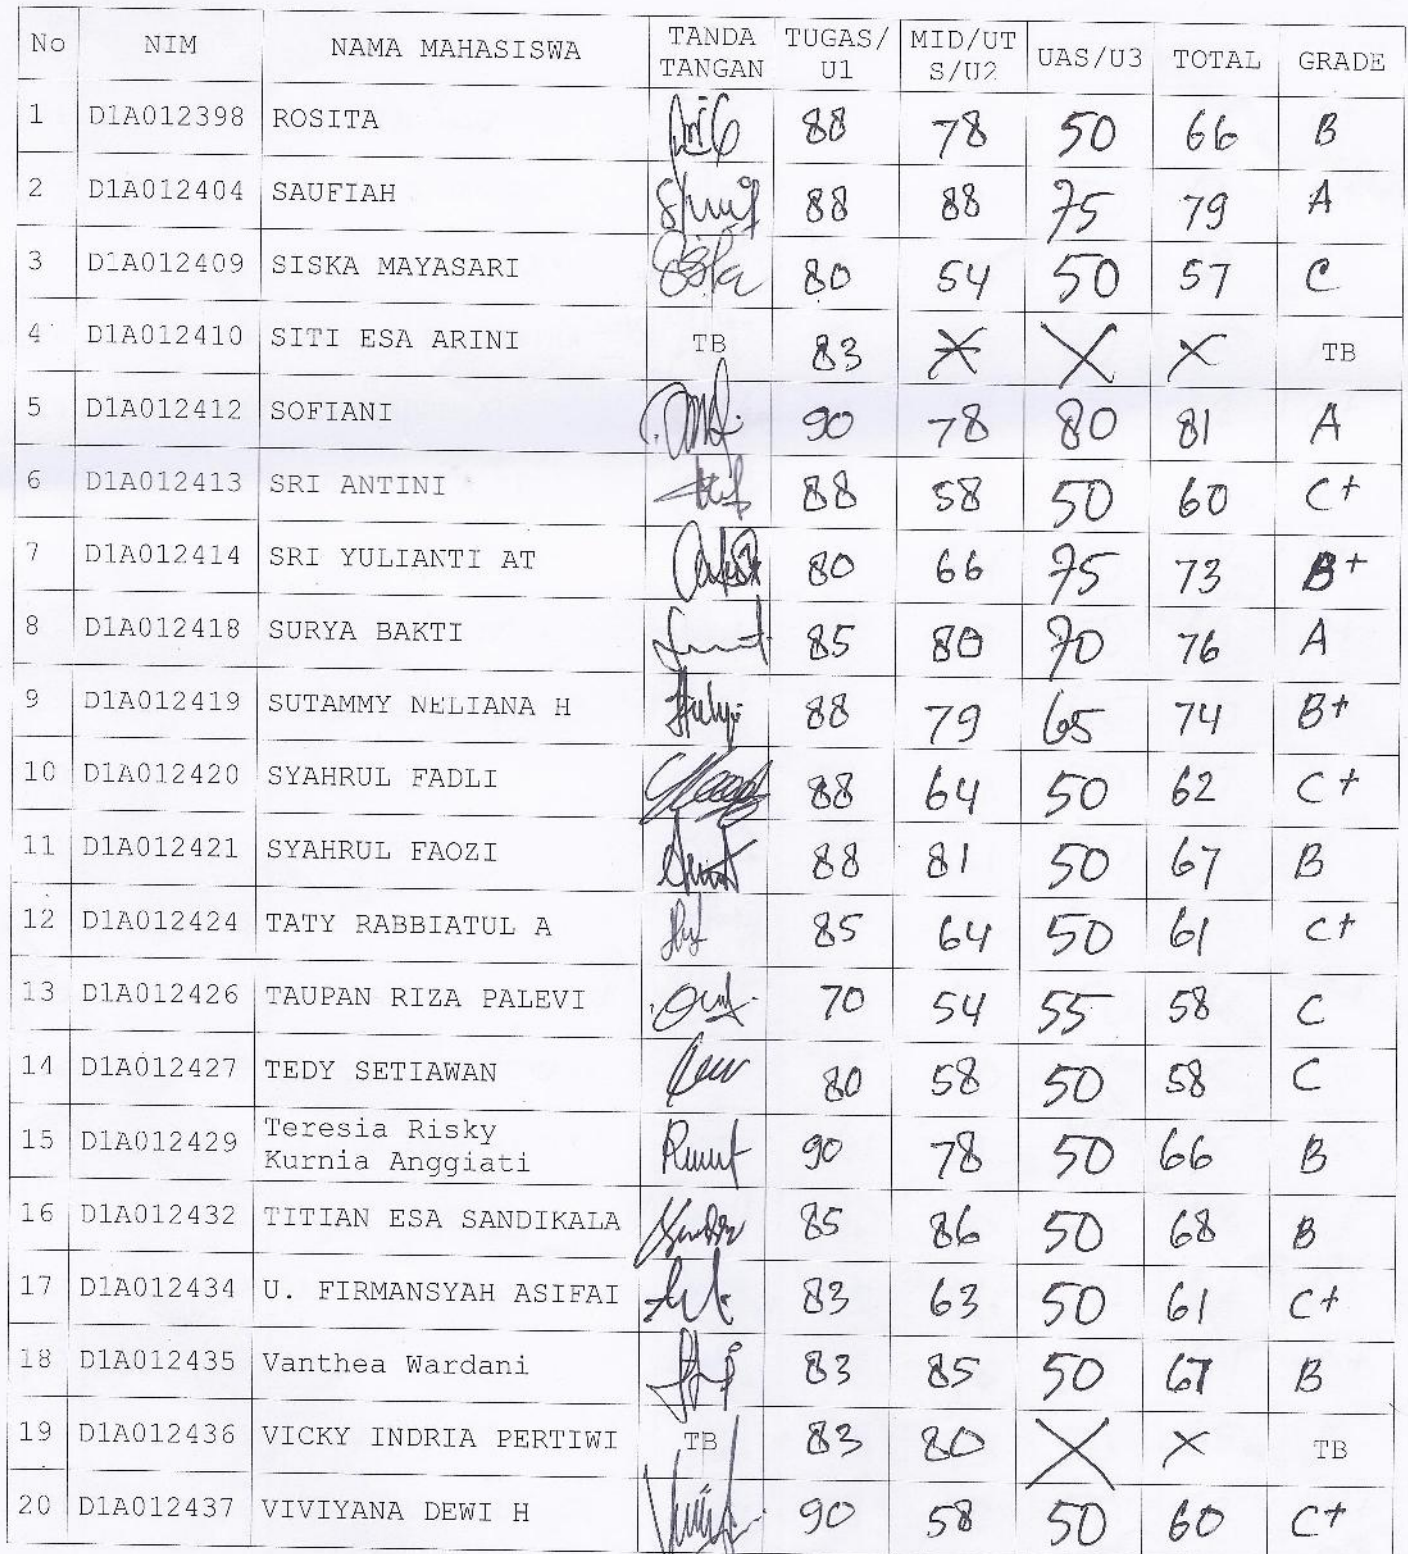 No NIM NAMA MAHASISWA TANDA TANGAN TUGAS/U1 MID/UTS/U2 UAS/U3 TOTAL GRADE
1 D1A012398 ROSITA 88 78 50 66 B
2 D1A012404 SAUFIAH 88 88 75 79 A
3 D1A012409 SISKA MAYASARI 80 54 50 57 C
4 D1A012410 SITI ESA ARINI TB 83 X X X TB
5 D1A012412 SOFIANI 90 78 80 81 A
6 D1A012413 SRI ANTINI 88 58 50 60 C+
7 D1A012414 SRI YULIANTI AT 80 66 75 73 B+
8 D1A012418 SURYA BAKTI 85 80 70 76 A
9 D1A012419 SUTAMMY NELIANA H 88 79 65 74 B+
10 D1A012420 SYAHRUL FADLI 88 64 50 62 C+
11 D1A012421 SYAHRUL FAOZI 88 81 50 67 B
12 D1A012424 TATY RABBIATUL A 85 64 50 61 C+
13 D1A012426 TAUPAN RIZA PALEVI 70 54 55 58 C
14 D1A012427 TEDY SETIAWAN 80 58 50 58 C
15 D1A012429 Teresia Risky Kurnia Anggiati 90 78 50 66 B
16 D1A012432 TITIAN ESA SANDIKALA 85 86 50 68 B
17 D1A012434 U. FIRMANSYAH ASIFAI 83 63 50 61 C+
18 D1A012435 Vanthea Wardani 83 85 50 67 B
19 D1A012436 VICKY INDRIA PERTIWI TB 83 80 X X TB
20 D1A012437 VIVIYANA DEWI H 90 58 50 60 C+